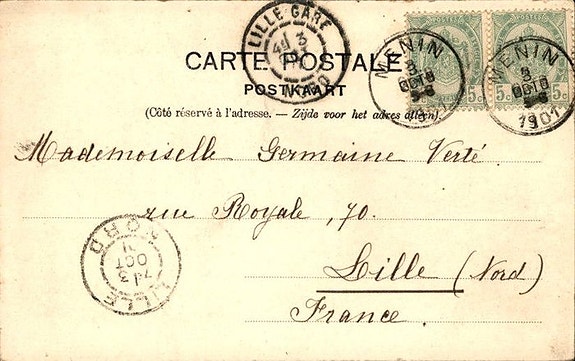 CARTE POSTALE
POSTKAART
(Côté réservé à l'adresse. — Zijde voor het adres alleen).
LILLE GARE
3
NORD
MENIN
3
OCTO
1901
MENIN
3
OCTO
1901
5c
5c
Mademoiselle Germaine Verté
rue Royale, 70.
Lille (Nord)
France.
LILLE
3
OCT
NORD